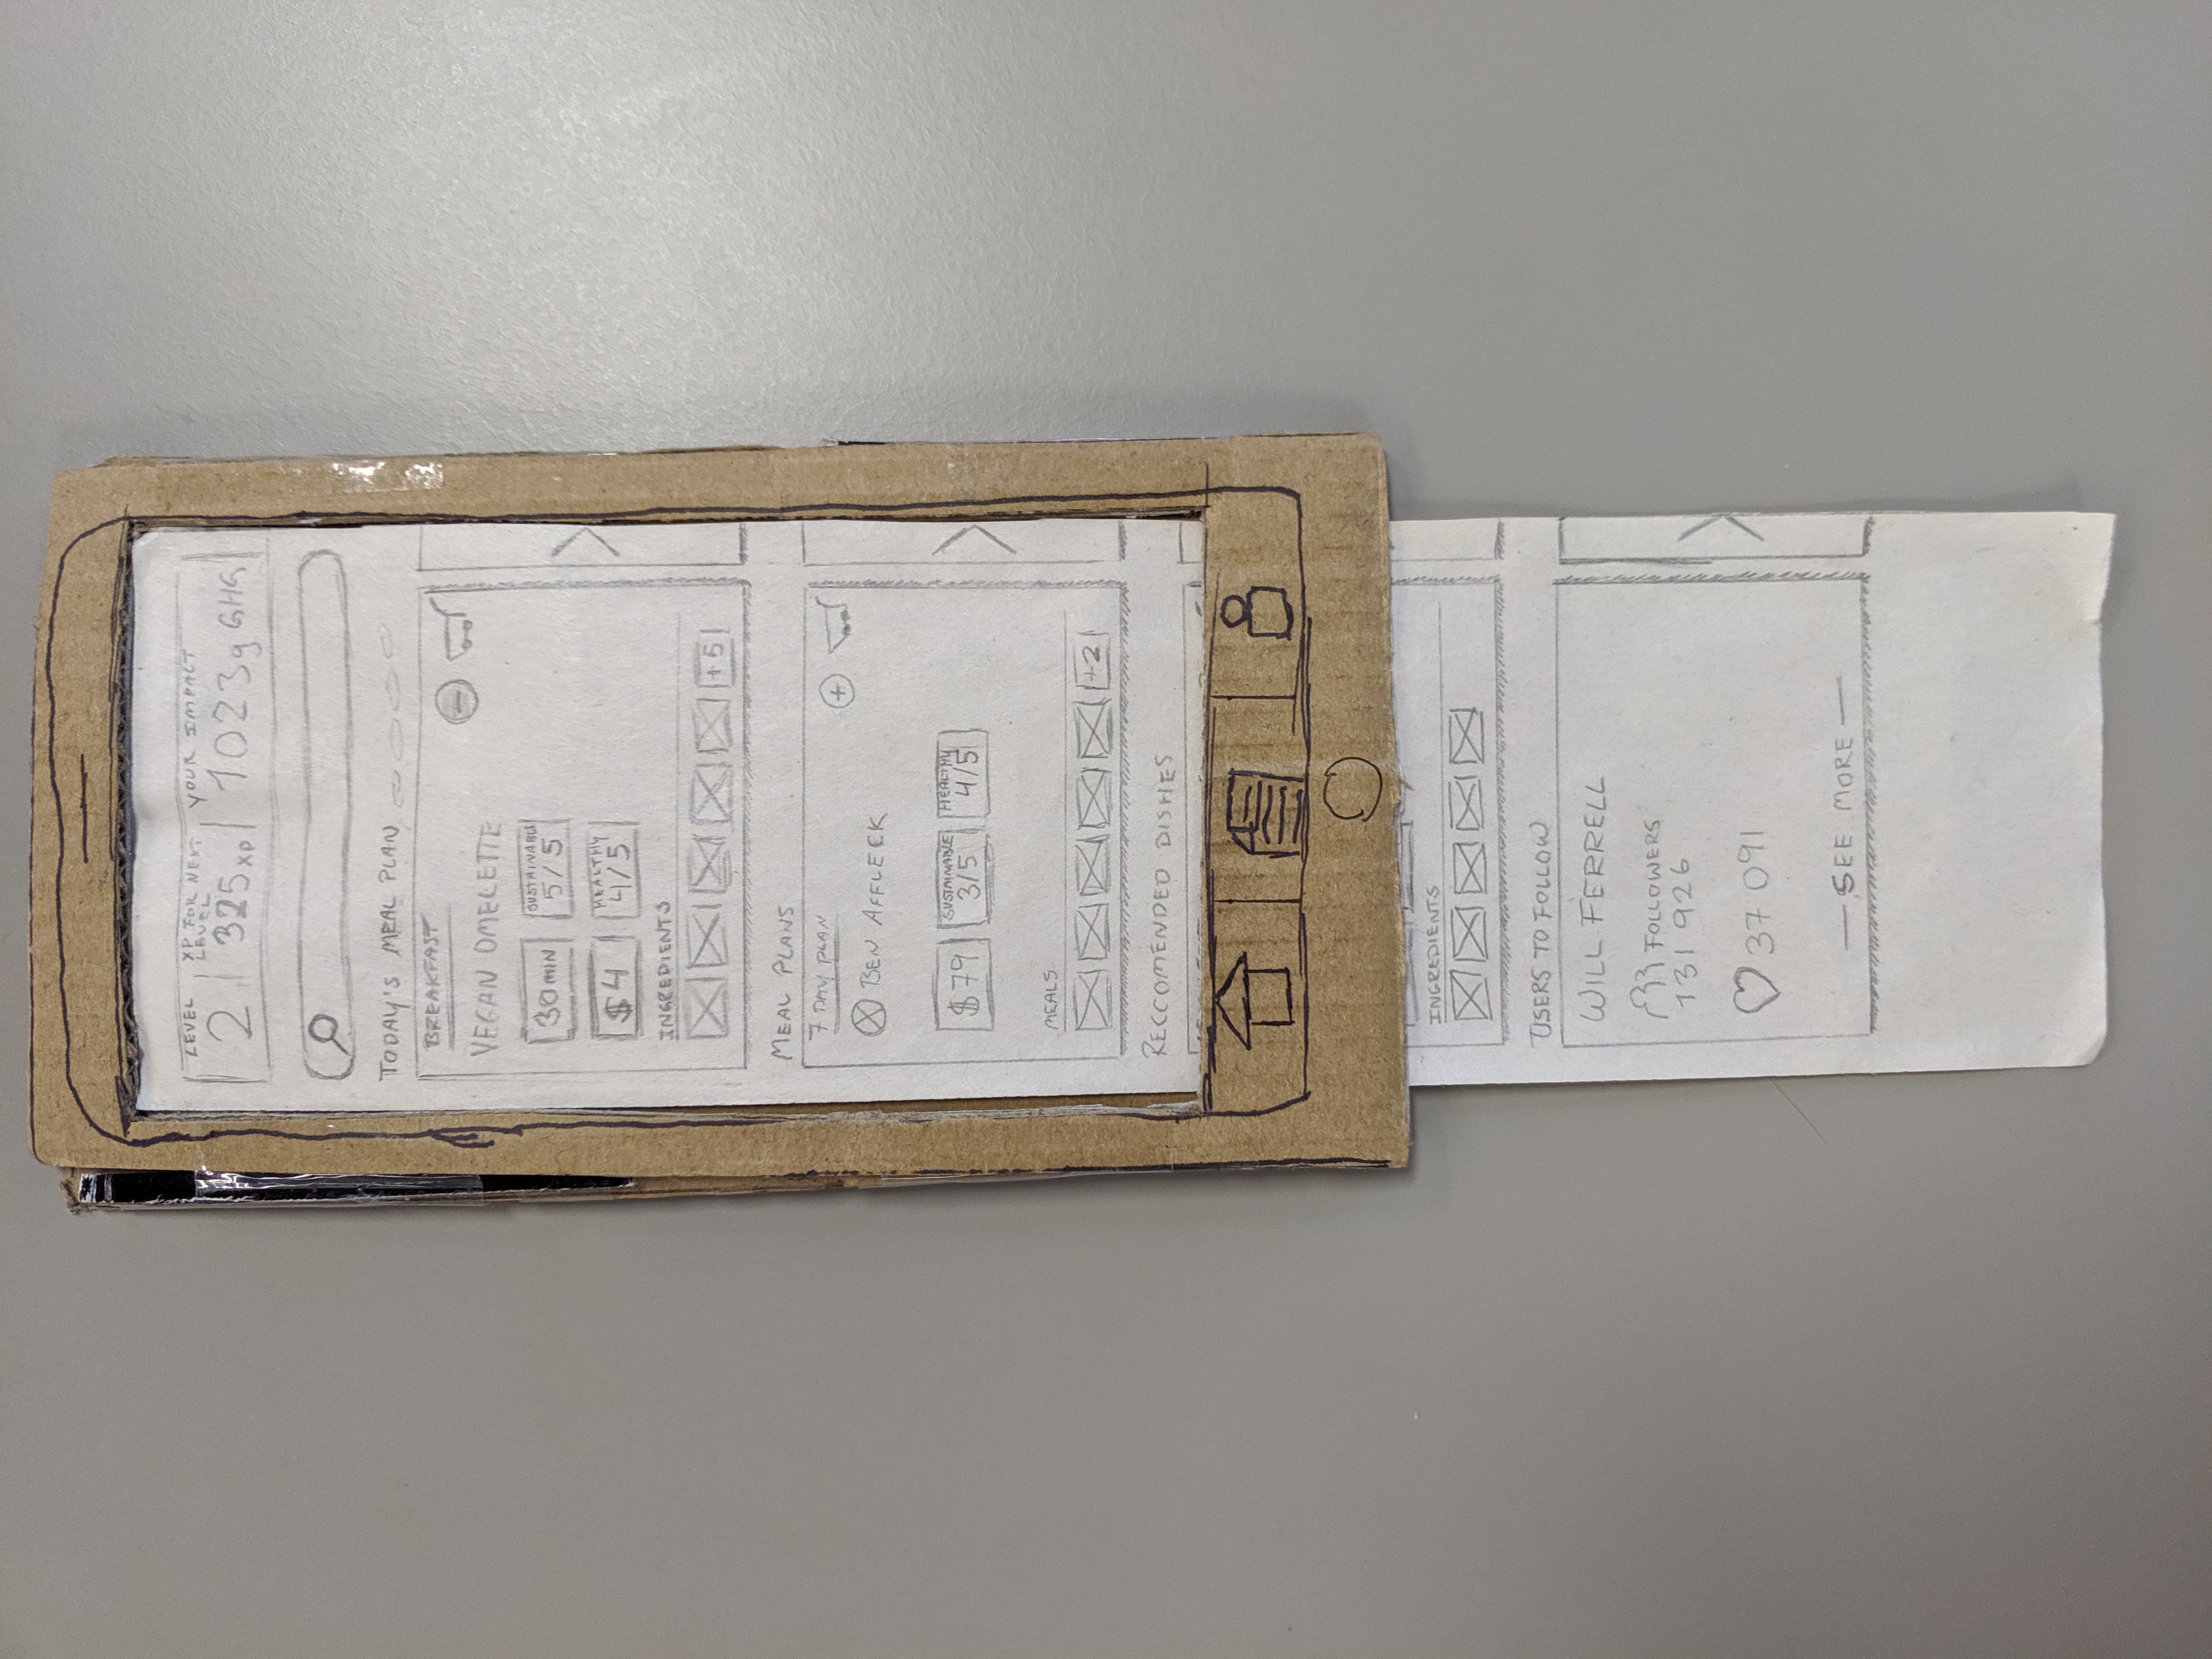 LEVEL XP FOR NEXT LEVEL YOUR IMPACT
2 325xp 1023g GHG
TODAY'S MEAL PLAN
BREAKFAST
VEGAN OMELETTE
30MIN SUSTAINABLE 5/5
$4 HEALTHY 4/5
INGREDIENTS
+5
MEAL PLANS
7 DAY PLAN
BEN AFFLECK
$79 SUSTAINABLE 3/5 HEALTHY 4/5
MEALS
+2
RECCOMENDED DISHES
INGREDIENTS
USERS TO FOLLOW
WILL FERRELL
FOLLOWERS
131 926
37 091
—SEE MORE—